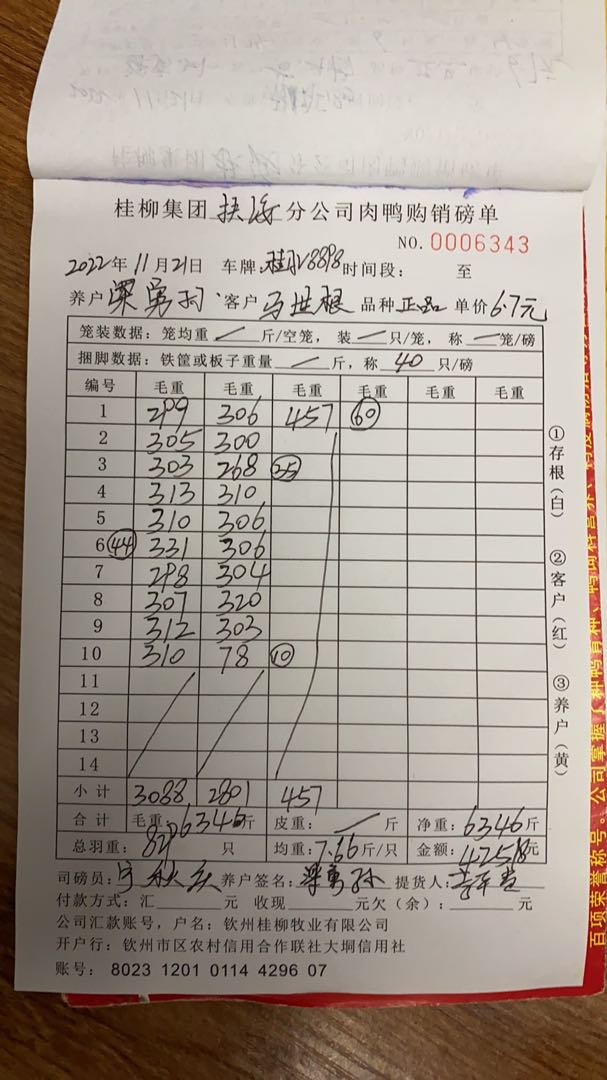 桂柳集团 扶绥 分公司肉鸭购销磅单
NO. 0006343
2022年 11月21日 车牌: 8898 时间段: 至
养户 梁勇 客户 马世根 品种 正品 单价 6.7元
笼装数据: 笼均重 / 斤/空笼, 装 / 只/笼, 称 / 笼/磅
捆脚数据: 铁筐或板子重量 / 斤, 称 40 只/磅
编号 毛重 毛重 毛重 毛重 毛重 毛重
1 299 306 457 60
2 305 300
3 303 268 25
4 313 310
5 310 306
6 44 331 306
7 298 304
8 307 320
9 312 303
10 310 78 10
11
12
13
14
小计 3088 2801 457
合计 毛重: 6346斤 皮重: / 斤 净重: 6346斤
总羽重: 只 均重: 7.66斤/只 金额: 42518元
司磅员: 养户签名: 梁勇 提货人:
付款方式: 汇 元 收现 元欠(余): 元
公司汇款账号, 户名: 钦州桂柳牧业有限公司
开户行: 钦州市区农村信用合作联社大垌信用社
账号: 8023 1201 0114 4296 07
①存根(白)
②客户(红)
③养户(黄)
百项荣誉称号。公司掌握了种鸭育种、